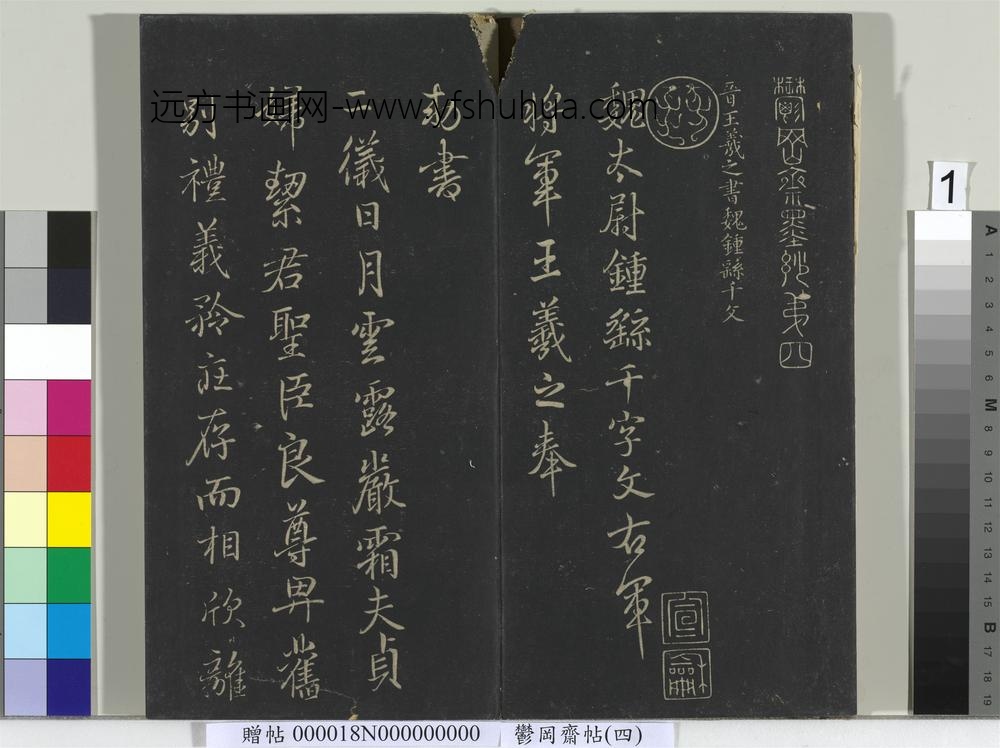 鬱岡齋墨妙第四
晉王羲之書魏鍾繇千文
魏太尉鍾繇千字文右軍
將軍王羲之奉
勑書
二儀日月雲露嚴霜夫貞
婦絜君聖臣良尊卑舊
別禮義矜莊存而相欣離
宣和
远方书画网-www.yfshuhua.com
1
A
1
2
3
4
5
6
M
8
9
10
11
12
13
14
15
B
17
18
19
贈帖 000018N000000000 鬱岡齋帖(四)